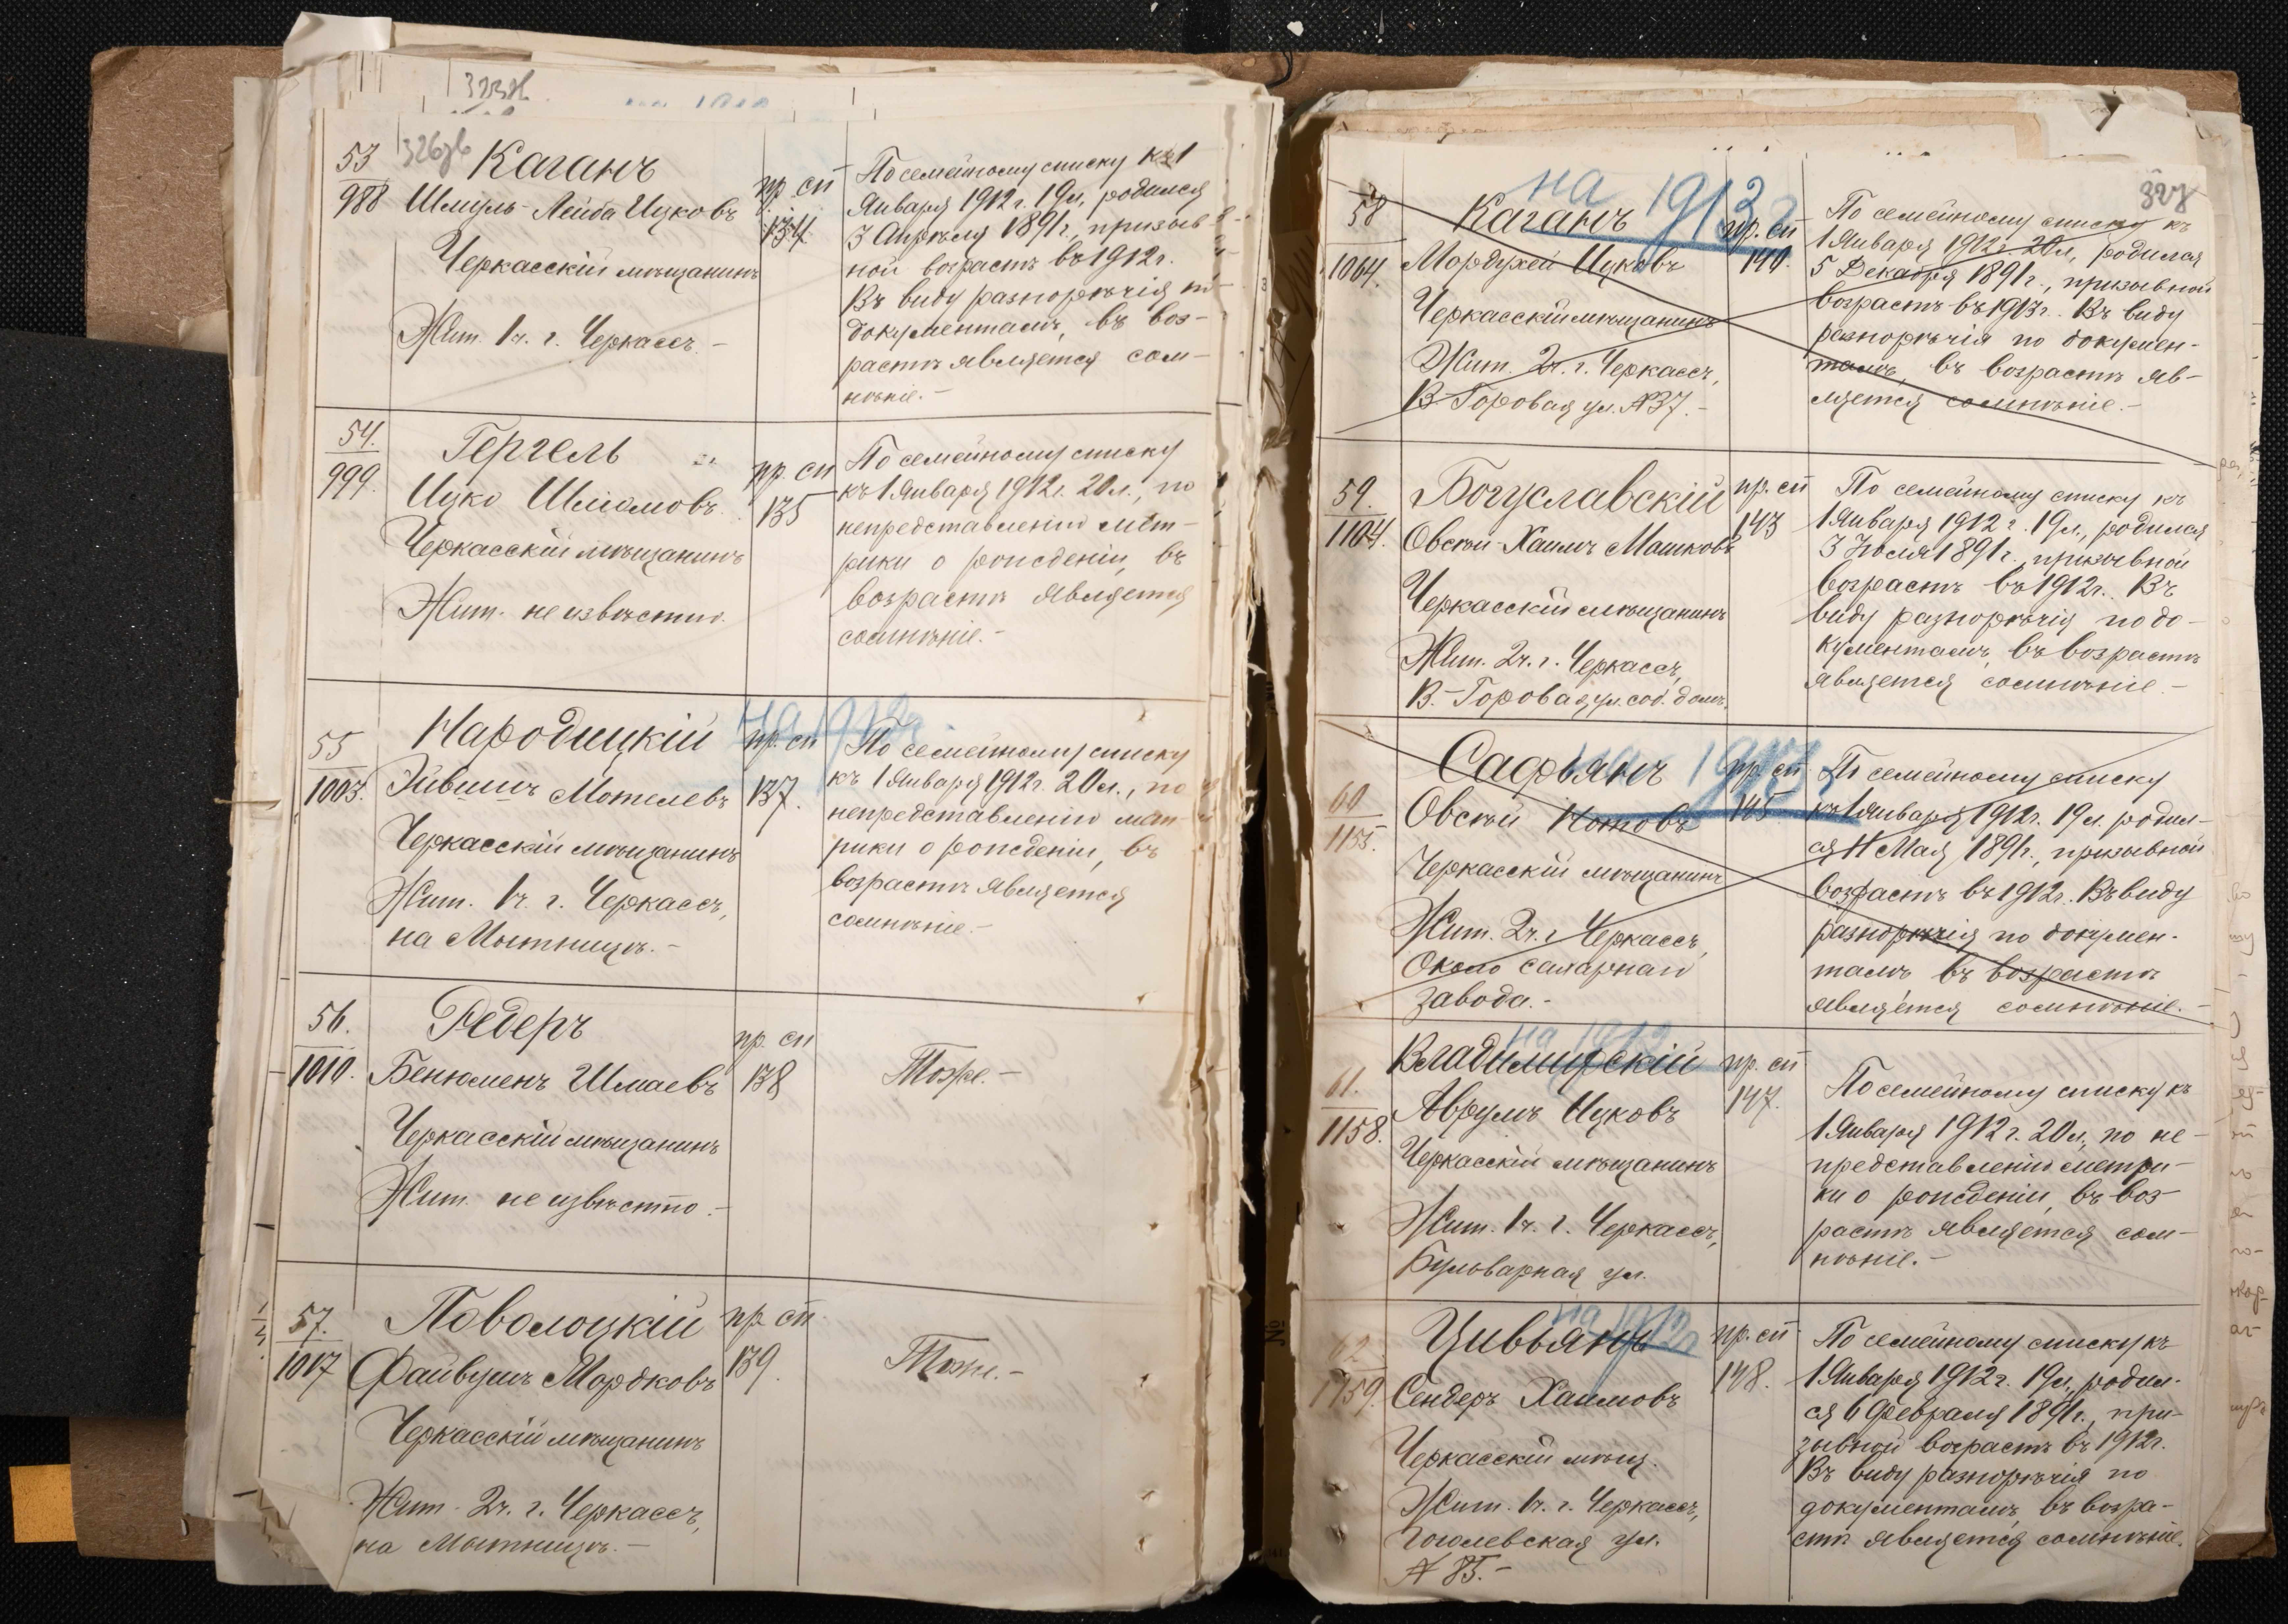 326зв
53
988
Каганъ
Шмуль-Лейба Ицковъ
Черкасскій мѣщанинъ
Жит. 1ч. г. Черкассъ.-
пр. сп
134
По семейному списку къ 1
Января 1912г. 19л, родился
3 Апрѣля 1891г., призыв-
ной возрастъ въ 1912г.
Въ виду разнорѣчія по
документамъ, въ воз-
растѣ является сом-
нѣніе.-
54.
999.
Гергель
Ицко Шліомовъ.
Черкасскій мѣщанинъ
Жит. не извѣстно.
пр. сп
135
По семейному списку
къ 1 Января 1912г. 20л., по
непредставленію мет-
рики о рожденіи, въ
возрастѣ является
сомнѣніе.-
на 1912г.
55
1003.
Народицкій
Эйвишъ Мотелевъ
Черкасскій мѣщанинъ
Жит. 1ч. г. Черкассъ,
на Мытницѣ.-
пр. сп
137.
По семейному списку
къ 1 Января 1912г. 20л., по
непредставленію мет-
рики о рожденіи, въ
возрастѣ является
сомнѣніе.-
56.
1010.
Редеръ
Бенюменъ Шмаевъ
Черкасскій мѣщанинъ
Жит. не извѣстно.-
пр. сп
138
Тоже.-
57.
1017
Поволоцкій
Файвушъ Мордковъ
Черкасскій мѣщанинъ
Жит. 2ч. г. Черкассъ,
на Мытницѣ.-
пр. сп
139.
Тоже.-
327
на 1913
58
1064.
Каганъ
Мордухей Ицковъ
Черкасскій мѣщанинъ
Жит. 2ч. г. Черкассъ,
В-Горовая ул. №37.-
пр. сп
140.
По семейному списку къ
1 Января 1912г. 20л, родился
5 Декабря 1891г., призывной
возрастъ въ 1913г. Въ виду
разнорѣчія по докумен-
тамъ, въ возрастѣ яв-
ляется сомнѣніе.-
59.
1104.
Богуславскій
Овсѣй-Хаимъ Машковъ
Черкасскій мѣщанинъ
Жит. 2ч. г. Черкассъ,
В.-Горовая ул. соб. домъ.
пр. сп
143
По семейному списку къ
1 Января 1912 г. 19л., родился
3 Іюля 1891г. призывной
возрастъ въ 1912г. Въ
виду разнорѣчія по до-
кументамъ, въ возрастѣ
является сомнѣніе.-
60
1155.
Сафьянъ
Овсѣй Нотовъ
Черкасскій мѣщанинъ
Жит. 2ч. г. Черкассъ,
Около сахарнаго
завода.-
пр. сп
145
По семейному списку
къ 1 Января 1912г. 19л. родил-
ся 11 Мая 1891г., призывной
возрастъ въ 1912г. Въ виду
разнорѣчія по докумен-
тамъ въ возрастѣ
является сомнѣніе.-
на 1912
61.
1158.
Владимирскій
Аврумъ Ицковъ
Черкасскій мѣщанинъ
Жит. 1ч. г. Черкассъ,
Бульварная ул.
пр. сп
147.
По семейному списку къ
1 Января 1912г. 20л, по не-
представленію метри-
ки о рожденіи, въ воз-
растѣ является сом-
нѣніе.-
на 1912г
62
1159.
Цивьянъ
Сендеръ Хаимовъ
Черкасскій мѣщ.
Жит. 1ч. г. Черкассъ,
Гоголевская ул.
№ 85.-
пр. сп
148.
По семейному списку къ
1 Января 1912г. 19л, родил-
ся 6 Февраля 1891г., при-
зывной возрастъ въ 1912г.
Въ виду разнорѣчія по
документамъ, въ возра-
стѣ является сомнѣніе.